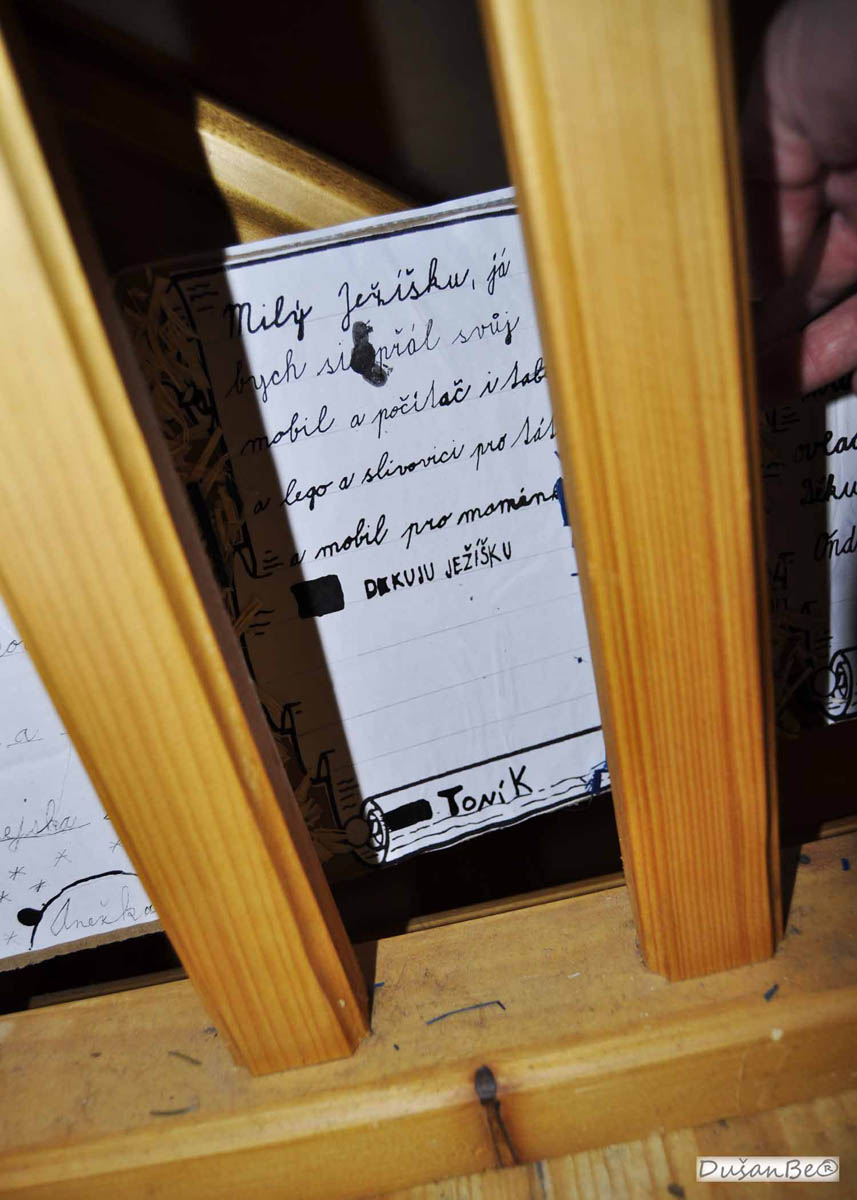 Milý Ježíšku, já
bych si přál svůj
mobil a počítač i tab
a lego a slivovici pro tát
a mobil pro mamin
DKUJU JEŽÍŠKU
Toník
a
ejska
Anežka
ovlad
Děku
Ond
DušanBe®